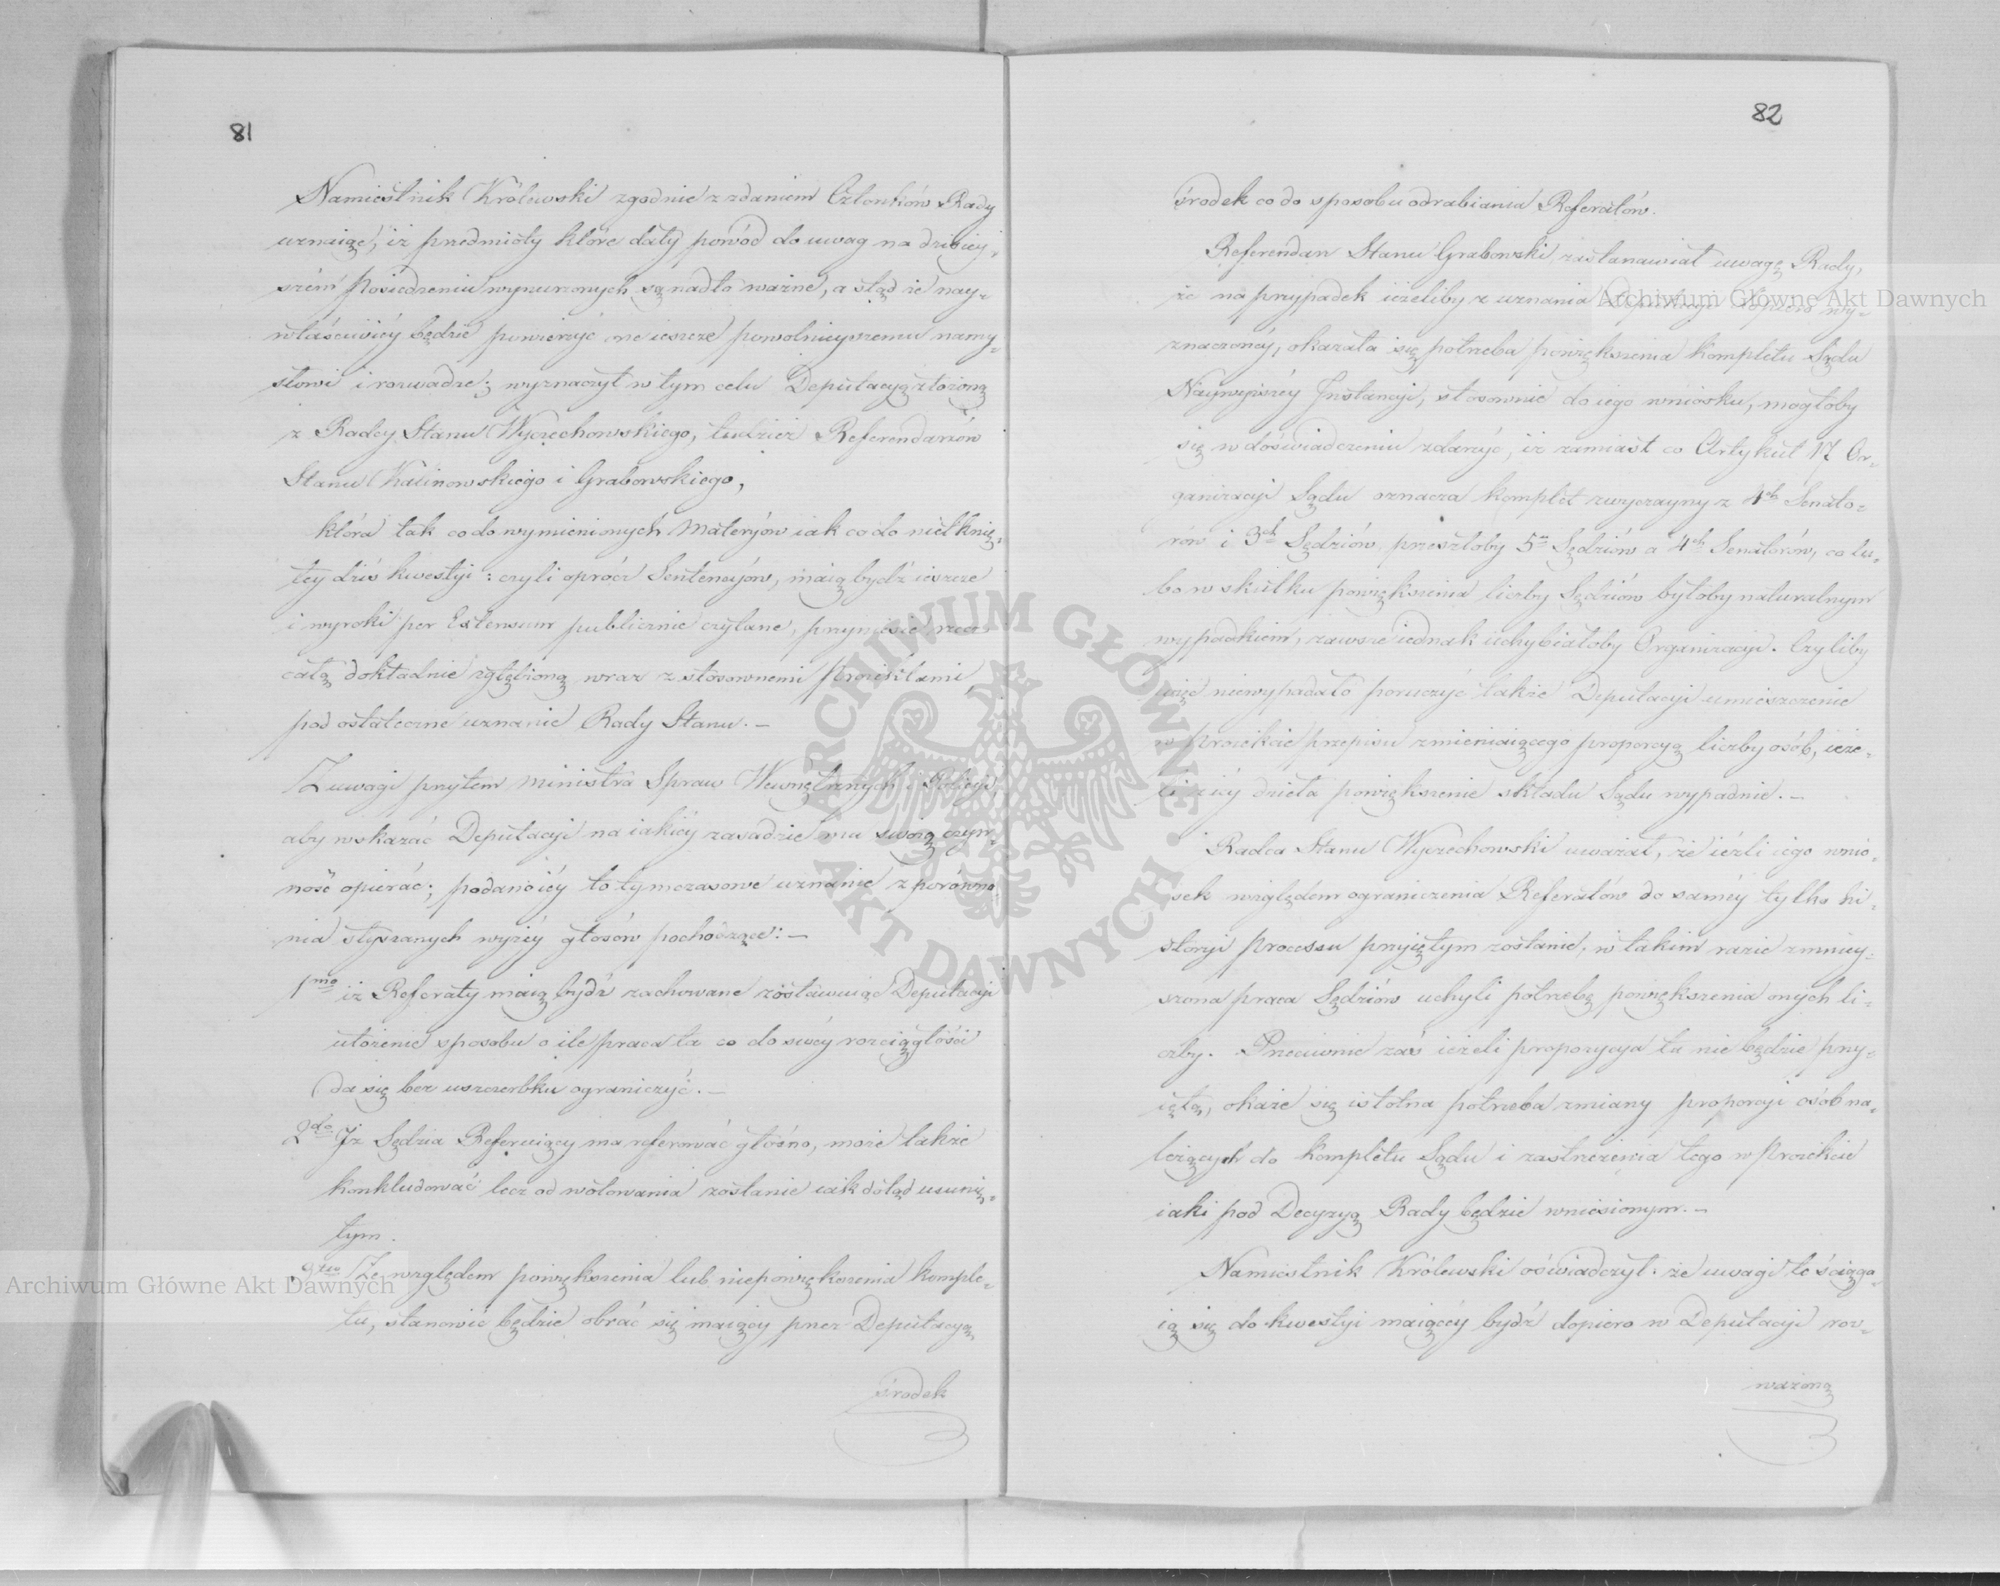 81
Namiestnik Królewski zgodnie z zdaniem Członków Rady
uznaiąc, iż przedmioty które dały powód do uwag na dzisiey-
szém Posiedzeniu wynurzonych są nadto ważne, a stąd że nay-
właściwiéy będzie powierzyć one ieszcze powolnieyszemu namy-
słowi i rozwadze; wyznaczył w tym celu Deputacyą złożoną
z Radcy Stanu Wyczechowskiego, tudzież Referendarzów
Stanu Kalinowskiego i Grabowskiego,
która tak co do wymienionych Materyów iak co do nietknię-
téy dziś kwestyi: czyli oprócz Sentencyów, maią bydź ieszcze
i wyroki per Extensum publicznie czytane, przyniesie rzecz
całą dokładnie zgłębioną wraz z stosownemi Proiektami
pod ostateczne uznanie Rady Stanu. —
Z uwagi przytém Ministra Spraw Wewnętrznych i Policyi,
aby wskazać Deputacyi na iakiéy zasadzie ma swoią czyn-
ność opierać; podano iéy to tymczasowe uznanie z porówna
nia słyszanych wyżéy głosów pochodzące: —
1mo iż Referaty maią bydź zachowane zostawuiąc Deputacyi
ułożenie sposobu o ile praca ta co do swéy rozciągłości
da się bez uszczerbku ograniczyć. —
2do Iż Sędzia Referuiący ma referować głośno, może także
konkludować lecz od wotowania zostanie iak dotąd usunię-
tym.
3tio Ze względem powiększenia lub niepowiększenia komple-
tu, stanowić będzie obrać się maiący przez Deputacyą
środek
82
środek co do sposobu odrabiania Referatów.
Referendarz Stanu Grabowski zastanawiał uwagę Rady,
że na przypadek ieżeliby z uznania Deputacyi dopiero wy-
znaczonéy, okazała się potrzeba powiększenia kompletu Sądu
Naywyższéy Instancyi, stosownie do iego wniosku, mogłoby
się w doświadczeniu zdarzyć, iż zamiast co Artykuł 17 Or-
ganizacyi Sądu oznacza komplet zwyczayny z 4ch Senato-
rów i 3ch Sędziów, przeszłoby 5u Sędziów a 4ch Senatorów, co lu-
bo w skutku powiększenia liczby Sędziów byłoby naturalnym
wypadkiem, zawsze iednak uchybiałoby Organizacyi. Czyliby
więc niewypadało poruczyć także Deputacyi umieszczenie
w Proiekcie przepisu zmieniaiącego proporcyą liczby osób, ieże-
li z iéy dzieła powiększenie składu Sądu wypadnie. —
Radca Stanu Wyczechowski uważał, że ieżli iego wnio-
sek względem ograniczenia Referatów do saméy tylko hi-
storyi Processu przyiętym zostanie, w takim razie zmniey-
szona praca Sędziów uchyli potrzebę powiększenia onych li-
czby. Przeciwnie zaś ieżeli propozycya ta nie będzie przy-
iętą, okaże się istotna potrzeba zmiany proporcyi osób na-
leżących do kompletu Sądu i zastrzeżenia tego w Proiekcie
iaki pod Decyzyą Rady będzie wniesionym. —
Namiestnik Królewski oświadczył: że uwagi te ściąga-
ią się do kwestyi maiącéy bydź dopiero w Deputacyi roz-
ważoną
Archiwum Główne Akt Dawnych
Archiwum Główne Akt Dawnych
ARCHIWUM GŁÓWNE · AKT DAWNYCH ·